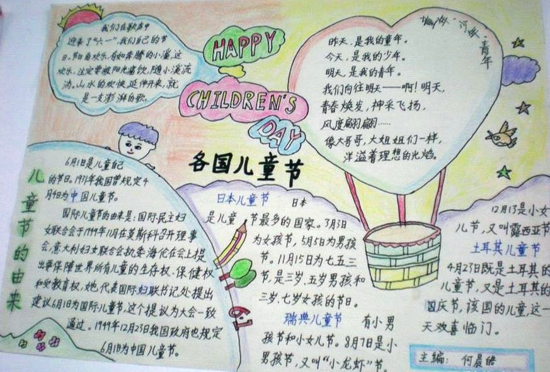 我们在歌声中
迎来了“六一”我们自己的
HAPPY
CHILDREN'S
DAY
昨天·今天·青年
昨天，是我的童年。
今天，是我的少年。
明天，是我的青年。
我们向往明天——啊！明天，
青春焕发，神采飞扬，
风度翩翩……
像大哥哥，大姐姐们一样，
洋溢着理想的光焰。
各国儿童节
儿童节的由来
6月1日是儿童自己
的节日。1931年我国曾规定4
月4日为中国儿童节。
国际儿童节的由来是：国际民主妇
女联合会于1949年11月在莫斯科召开理事
会，意大利妇女联合会执委海伦在会上提
出要保障世界所有儿童的生存权·保健权
和受教育权，她代表国际妇联书记处提出
建议6月1日为国际儿童节，这个提议为大会一致
通过。1949年12月23日我国政府也规定
6月1日为中国儿童节。
日本儿童节 日本
是儿童节最多的国家。3月3日
为女孩节，5月5日为男孩
节。11月15日为七五三
节，是三岁、五岁男孩和
三岁、七岁女孩的节日。
瑞典儿童节 有小男
孩节和小女儿节。8月7日是小
男孩节，又叫“小龙虾”节。
12月13是小女
儿节，又叫露西亚节
土耳其儿童节
4月23日既是土耳其的儿
童节，又是土耳其的
国庆节，该国的儿童这一
天欢喜临门。
主编：何晨